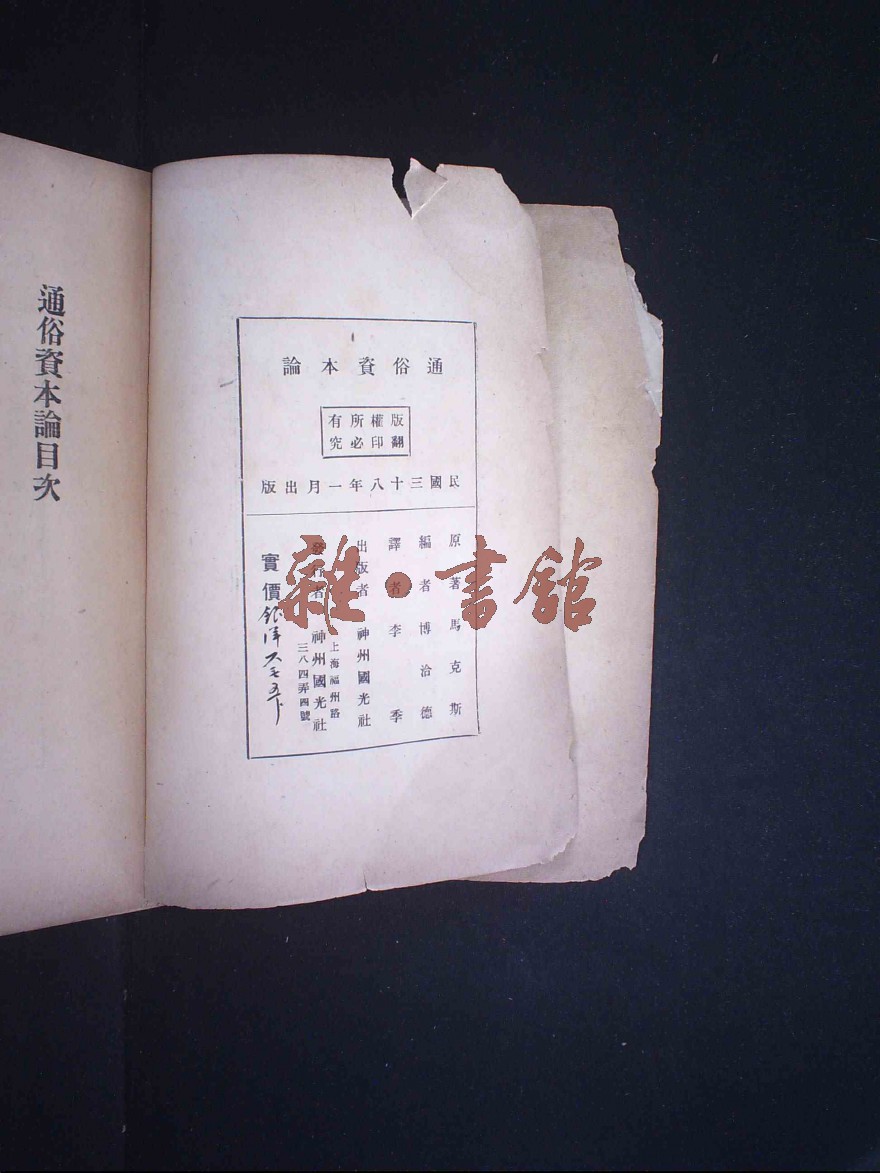 通俗資本論
版權所有
翻印必究
民國三十八年一月出版
原著 馬克斯
編者 博洽德
譯者 李季
出版者 神州國光社
發行者 神州國光社
上海福州路
三八四弄四號
實價
通俗資本論目次
雜·書館